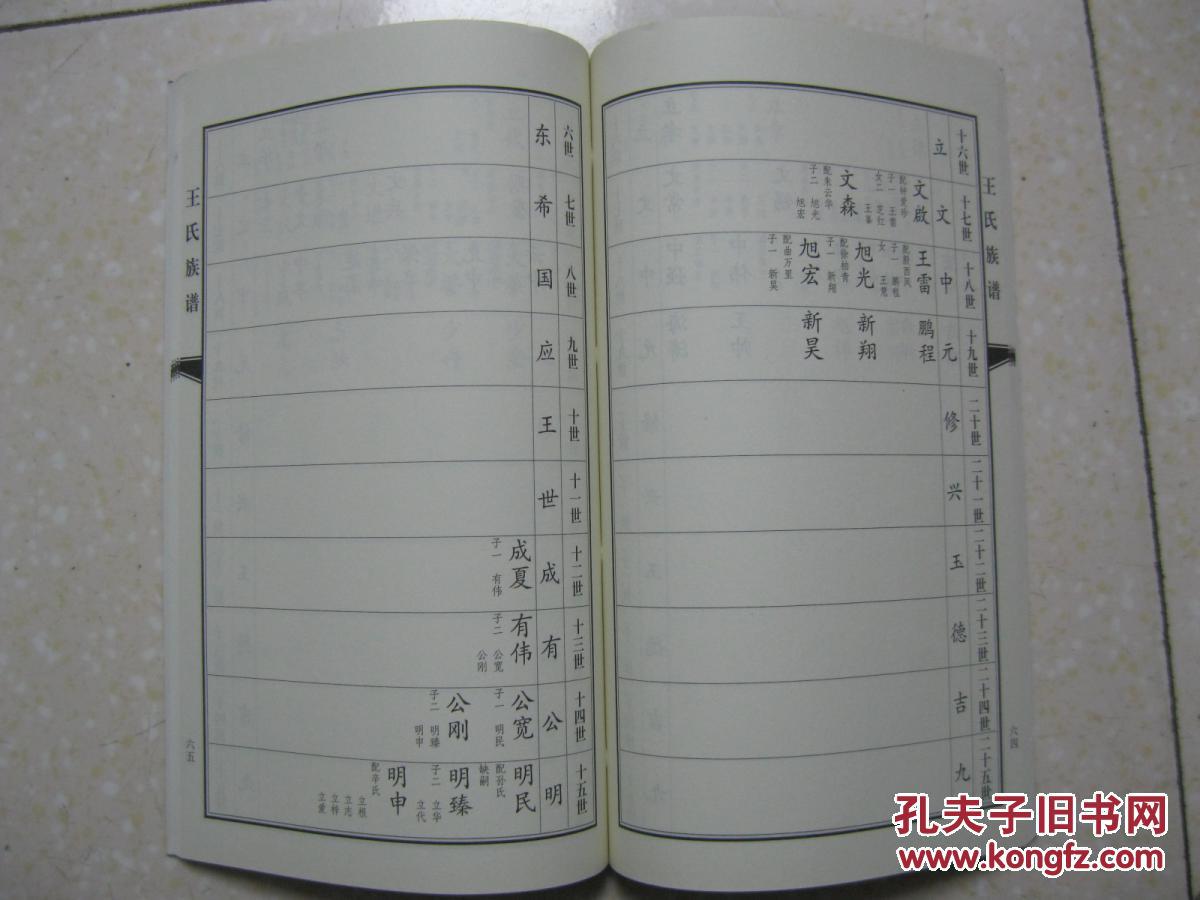 王氏族谱
十六世
立
十七世
文
文啟
配钟爱珍
子一 王雷
女二 芝红
王峯
文森
配朱云华
子二 旭光
旭宏
十八世
中
王雷
子一 鹏程
女一
旭光
配徐柏青
子一 新翔
旭宏
配曲万里
子一 新昊
十九世
元
鹏程
新翔
新昊
二十世
修
二十一世
兴
二十二世
玉
二十三世
德
二十四世
吉
二十五世
九
六四
六世
东
七世
希
八世
国
九世
应
十世
王
十一世
世
十二世
成
成夏
子一 有伟
十三世
有
有伟
子二 公宽
公刚
十四世
公
公宽
子一 明民
公刚
子二 明臻
明申
十五世
明
明民
配孙氏
缺嗣
明臻
子二 立华
立代
明申
配辛氏
立根
立志
立梓
王氏族谱
六五
孔夫子旧书网
www.kongfz.com